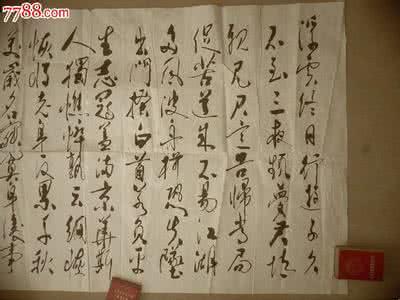 7788.com
浮雲終日行遊子久
不至三夜頻夢君情
親見君意告歸常局
促苦道來不易江湖
多風波舟楫恐失墜
出門搔白首若負平
生志冠蓋滿京華斯
人獨憔悴孰云網恢
恢將老身反累千秋
萬歲名寂寞身後事